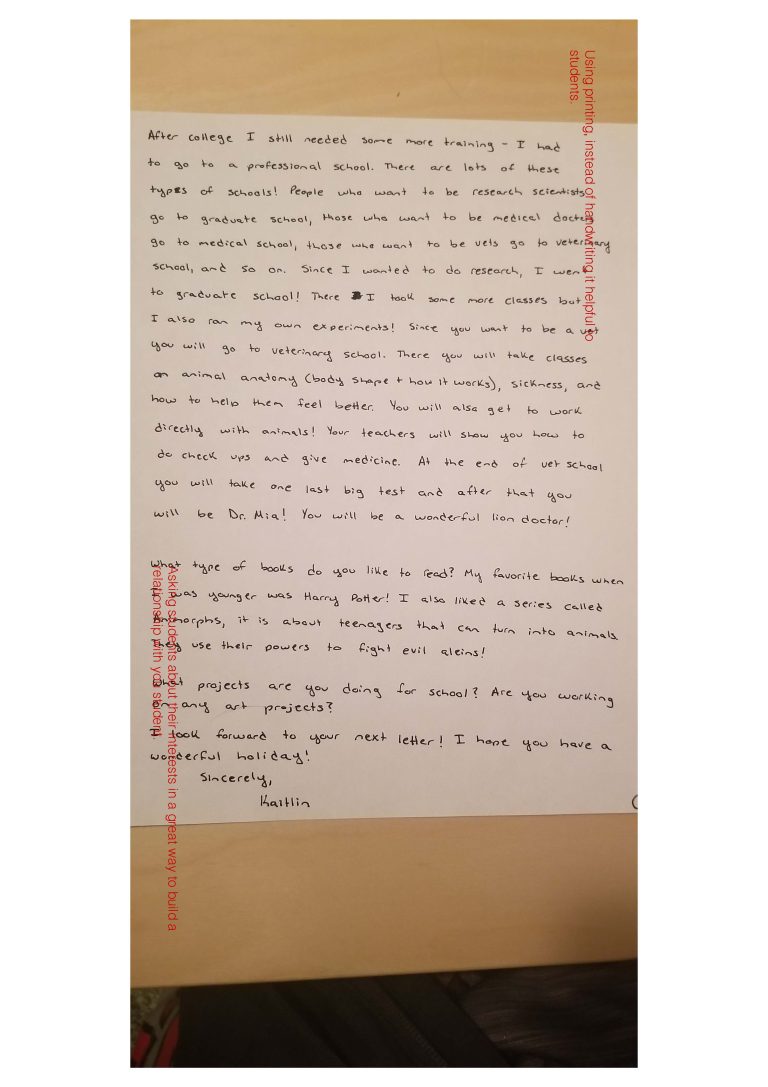 Using printing, instead of handwriting it helpful to
students.
After college I still needed some more training - I had
to go to a professional school. There are lots of these
types of schools! People who want to be research scientists
go to graduate school, those who want to be medical doctors
go to medical school, those who want to be vets go to veterinary
school, and so on. Since I wanted to do research, I went
to graduate school! There I took some more classes but
I also ran my own experiments! Since you want to be a vet
you will go to veterinary school. There you will take classes
on animal anatomy (body shape + how it works), sickness, and
how to help them feel better. You will also get to work
directly with animals! Your teachers will show you how to
do check ups and give medicine. At the end of vet school
you will take one last big test and after that you
will be Dr. Mia! You will be a wonderful lion doctor!
What type of books do you like to read? My favorite books when
I was younger was Harry Potter! I also liked a series called
Animorphs, it is about teenagers that can turn into animals.
They use their powers to fight evil aleins!
What projects are you doing for school? Are you working
on any art projects?
I look forward to your next letter! I hope you have a
wonderful holiday!
Sincerely,
Kaitlin
Asking students about their interests in a great way to build a
relationship with you student.